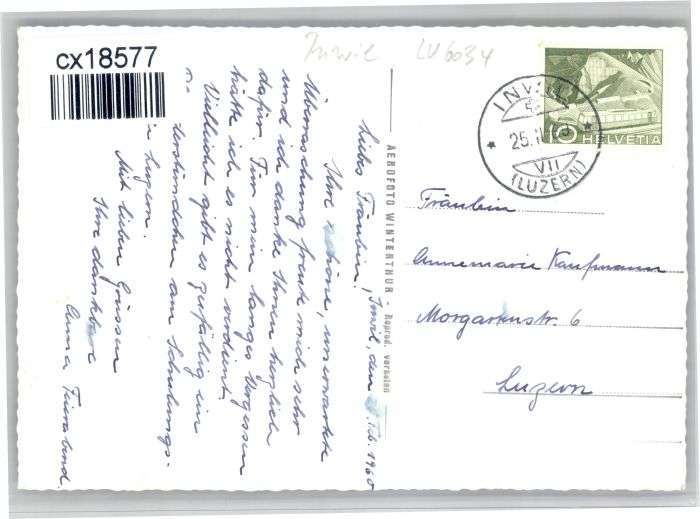 cx18577
Inwil LU 6034
INWIL
25.II.
VII
(LUZERN)
10 HELVETIA
AEROFOTO WINTERTHUR - Reprod. verboten
Inwil, den 2. Feb. 1960
Liebes Fräulein,
Ihre schöne, unerwartete
Überraschung freute mich sehr
und ich danke Ihnen herzlich
dafür. Für mein langes Vergessen
hätte ich es nicht verdient.
Vielleicht gibt es zufällig ein
am Schulungs-
in Luzern.
Mit lieben Grüssen
Ihre dankbare
Anna
Fräulein
Annemarie Kaufmann
Morgartenstr. 6
Luzern